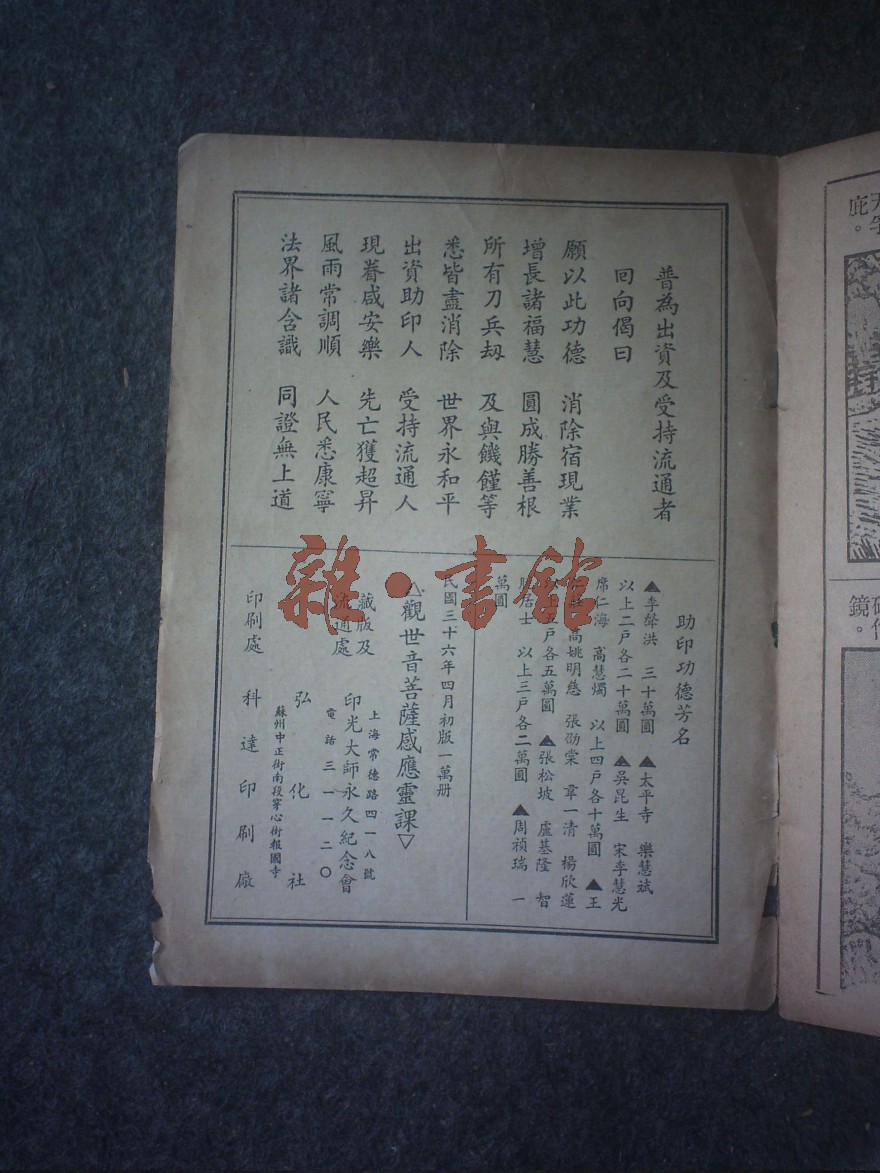 普為出資及受持流通者
回向偈曰
願以此功德 消除宿現業
增長諸福慧 圓成勝善根
所有刀兵劫 及與饑饉等
悉皆盡消除 世界永和平
出資助印人 受持流通人
現眷咸安樂 先亡獲超昇
風雨常調順 人民悉康寧
法界諸含識 同證無上道
助印功德芳名
▲李聲洪 三十萬圓 ▲太平寺 樂慧斌
以上二戶各二十萬圓 ▲吳昆生 宋李慧光
席仁海 高慧燭 以上四戶各十萬圓 ▲王
高姚明慈 張劭棠 章一清 楊欣蓮
以上 戶各五萬圓 ▲張松坡 盧基隆 智
居士 以上三戶各二萬圓 ▲周禎瑞 一
萬圓
民國三十六年四月初版一萬册
△觀世音菩薩感應靈課▽
藏版及
流通處
上海常德路四一八號
印光大師永久紀念會
電話三一一二〇
弘化社
蘇州中正街南段穿心街報國寺
印刷處 科達印刷廠
雜·書館
庇。
鏡。